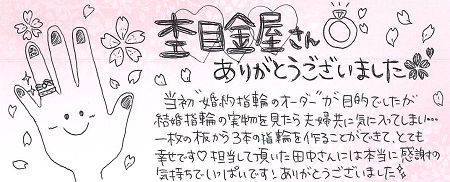 杢目金屋さん
ありがとうございました
当初"婚約指輪のオーダー"が目的でしたが
結婚指輪の実物を見たら夫婦共に気に入ってしまい…
一枚の板から3本の指輪を作ることができて、とても
幸せです♡担当して頂いた田中さんには本当に感謝の
気持ちでいっぱいです!ありがとうございました